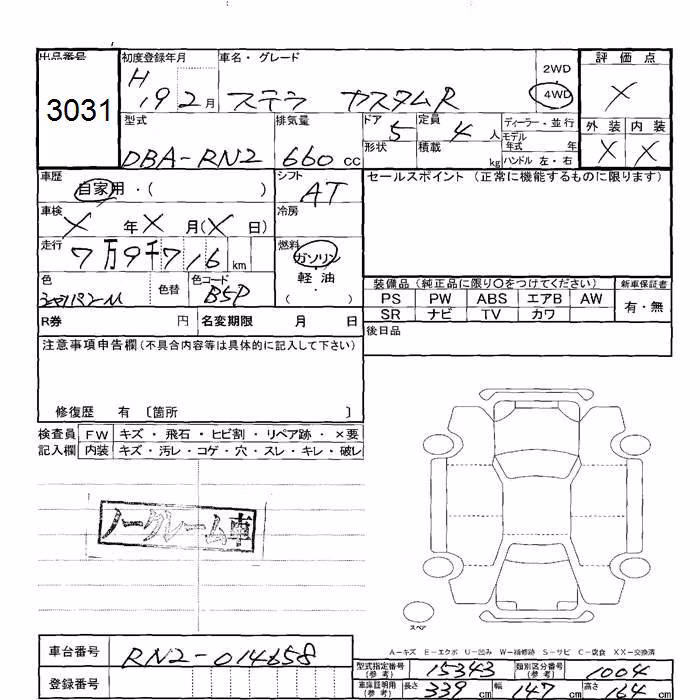 出品番号 初度登録年月 車名・グレード
3031 H 19 2月 ステラ カスタムR 2WD 4WD
評価点
×
外装 内装
× ×
型式 排気量 ドア 定員 ディーラー・並行
DBA-RN2 660cc 5 4人 モデル年式 年
形状 積載 kg ハンドル 左・右
車歴 シフト セールスポイント (正常に機能するものに限ります)
自家用・( ) AT
車検 冷房
× 年 × 月(× 日)
走行 燃料
7万9千716km ガソリン
軽油
( ・ )
色 色替 色コード
B5P
装備品 (純正品に限り○をつけてください) 新車保証書
PS PW ABS エアB AW 有・無
SR ナビ TV カワ
R券 円 名変期限 月 日
後日品
注意事項申告欄 (不具合内容等は具体的に記入して下さい)
修復歴 有 〔箇所 〕
検査員 FW キズ・飛石・ヒビ割・リペア跡・×要
記入欄 内装 キズ・汚レ・コゲ・穴・スレ・キレ・破レ
ノークレーム車
スペア
A-キズ E-エクボ U-凹み W-補修跡 S-サビ C-腐食 XX-交換済
車台番号 RN2-014658
型式指定番号(参考) 15343 類別区分番号(参考) 1004
登録番号
車庫証明用(参考) 長さ 339cm 幅 147cm 高さ 164cm